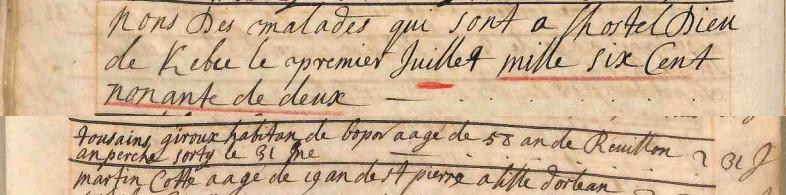 noms Des malades qui sont a lhostel Dieu
de Kebec le apremier Juillet mille six Cent
nonante de deux
tousains giroux habitan de bopor aage de 58 an de Reuillon 2 31 J
an perche sorty le 31 me
martin Cotte aage de 19 an de st pierre a lille dorlean